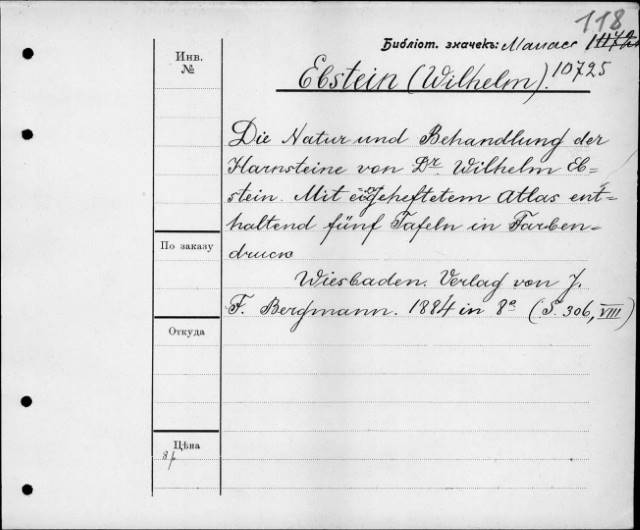 118
Библіот. значекъ: Манасс
10725
Инв.
№
Ebstein (Wilhelm).
Die Natur und Behandlung der
Harnsteine von Dr. Wilhelm Eb=
stein. Mit eingeheftetem Atlas ent=
haltend fünf Tafeln in Farben=
druck
По заказу
Wiesbaden. Verlag von J.
F. Bergmann. 1884 in 8º (S. 306, VIII)
Откуда
Цѣна
8р